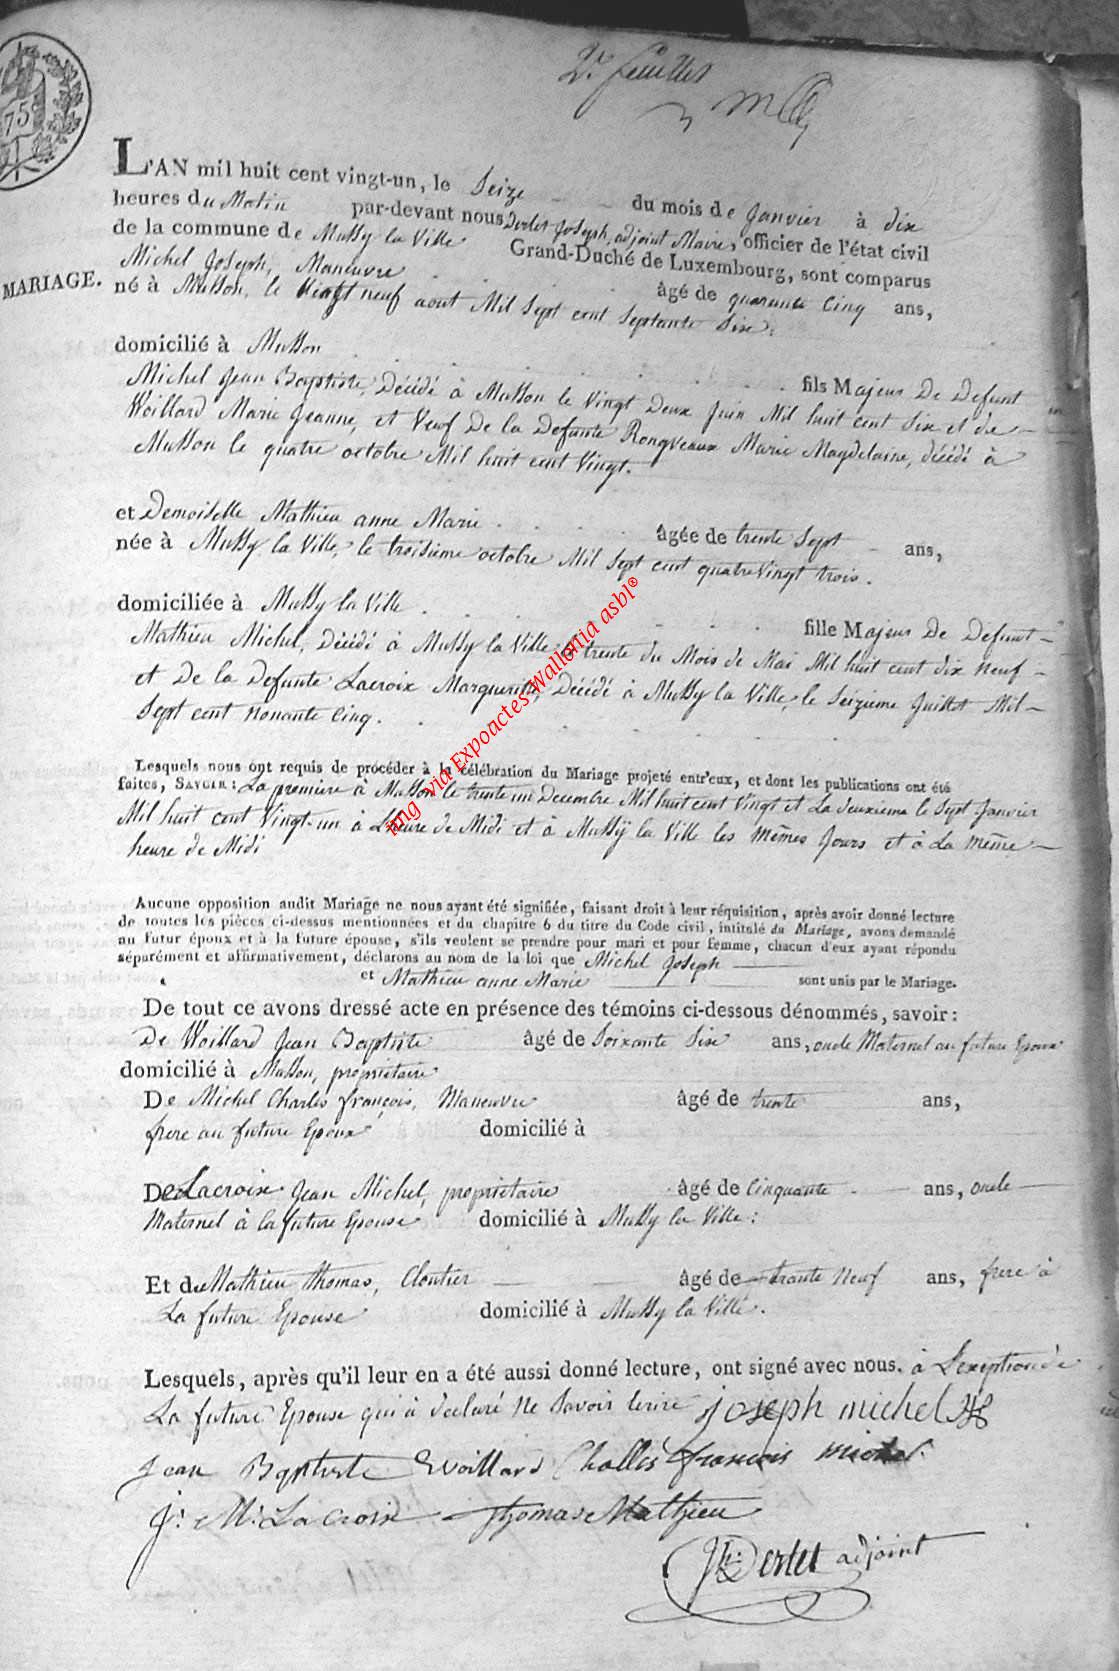 2e feuillet
75
L'AN mil huit cent vingt-un, le Seize du mois de Janvier à dix
heures du Matin par-devant nous Dertet Joseph, adjoint Maire, officier de l'état civil
de la commune de Mussy la Ville Grand-Duché de Luxembourg, sont comparus
MARIAGE.
Michel Joseph, Maneuvre âgé de quarante Cinq ans,
né à Musson, le Vingt neuf aout Mil Sept cent Septante Six.
domicilié à Musson fils Majeur De Defunt
Michel Jean Baptiste, Décédé à Musson le Vingt Deux Juin Mil huit cent Six et de
Woillard Marie Jeanne, et Veuf De la Defunte Rongveaux Marie Magdelaine, décédé à
Musson le quatre octobre Mil huit cent Vingt.
et Demoiselle Mathieu anne Marie âgée de trente Sept ans,
née à Mussy la Ville, le troisieme octobre Mil Sept cent quatre Vingt trois.
domiciliée à Mussy la Ville fille Majeur De Defunt
Mathieu Michel, Décédé à Mussy la Ville le trente du Mois de Mai Mil huit cent dix Neuf
et De la Defunte Lacroix Marguerite, Décédé à Mussy la Ville, le Seizieme Juillet Mil
Sept cent Nonante Cinq.
Lesquels nous ont requis de procéder à la célébration du Mariage projeté entr'eux, et dont les publications ont été
faites, SAVOIR : La premiere à Musson le trente un Decembre Mil huit cent Vingt et La deuxieme le Sept Janvier
Mil huit cent Vingt-un à L'heure de Midi et à Mussÿ la Ville les Mêmes Jours et à La même
heure de Midi
Aucune opposition audit Mariage ne nous ayant été signifiée, faisant droit à leur réquisition, après avoir donné lecture
de toutes les pièces ci-dessus mentionnées et du chapitre 6 du titre du Code civil, intitulé du Mariage, avons demandé
au futur époux et à la future épouse, s'ils veulent se prendre pour mari et pour femme, chacun d'eux ayant répondu
séparément et affirmativement, déclarons au nom de la loi que Michel Joseph
et Mathieu anne Marie sont unis par le Mariage.
De tout ce avons dressé acte en présence des témoins ci-dessous dénommés, savoir :
De Woillard Jean Baptiste âgé de Soixante Six ans, oncle Maternel au future Epoux
domicilié à Musson, propriétaire
De Michel Charles françois, Maneuvre âgé de trente ans,
frere au future Epoux domicilié à
De Lacroix Jean Michel, propriétaire âgé de Cinquante ans, oncle
Maternel à la future Epouse domicilié à Mussy la Ville :
Et de Mathieu thomas, Cloutier âgé de trante Neuf ans, frere à
La future Epouse domicilié à Mussy la Ville.
Lesquels, après qu'il leur en a été aussi donné lecture, ont signé avec nous. à L'exeption de
La future Epouse qui à declaré Ne Savoir Ecrire joseph michel
Jean Baptiste Woillard Challes francois michel
J. M. Lacroix thomas Mathieu
Jh. Dertet adjoint
img via Expoactes-Wallonia asbl®